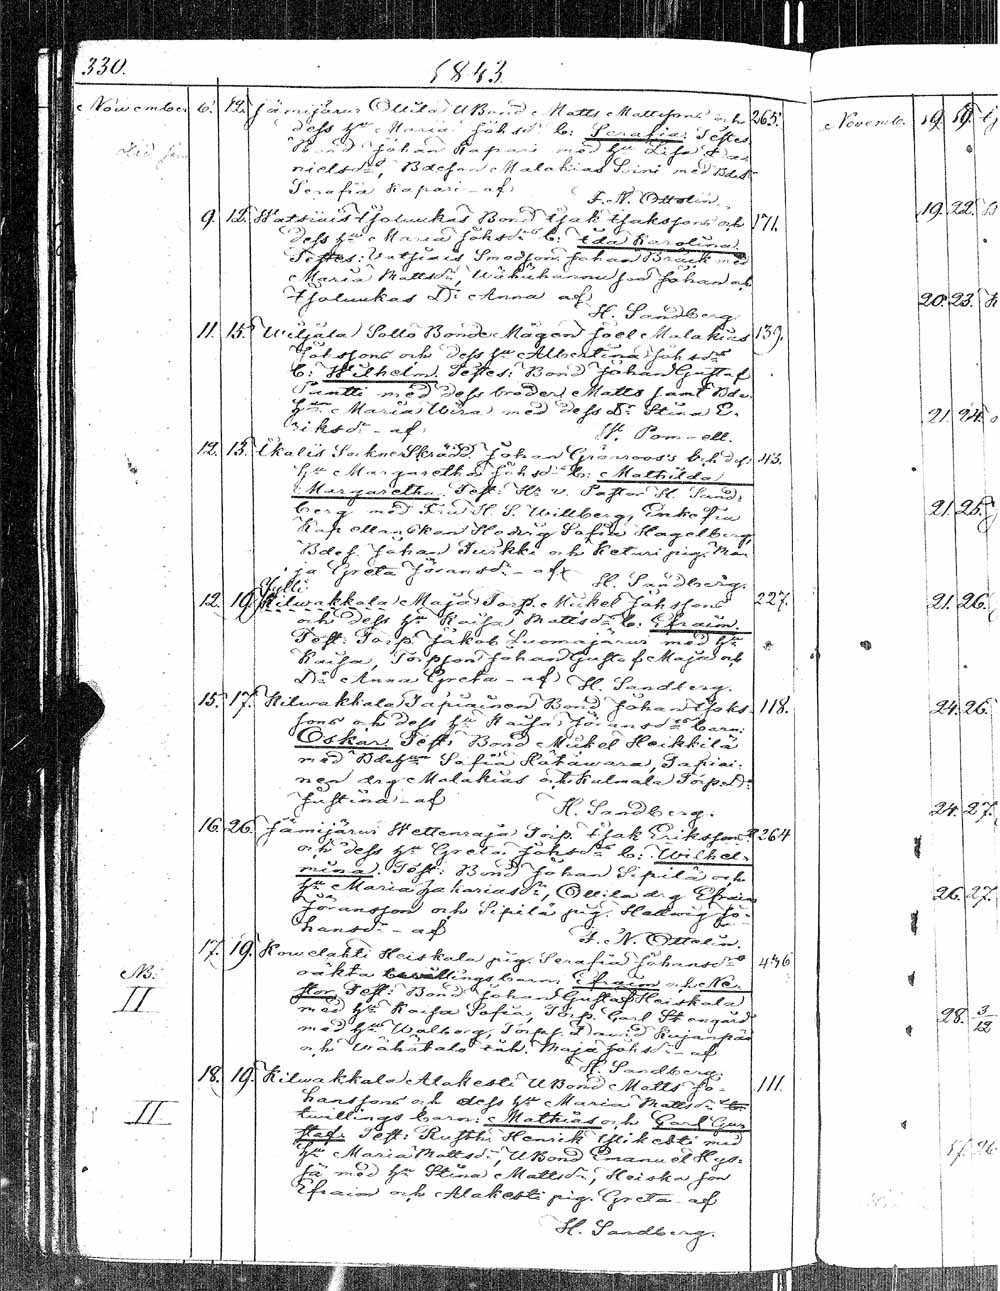 330. 1843.
November 6. 12. Jämijärvi Ollila UBond Matts Mattsson och 265.
dess hu Maria Johsdr b: Serafia Testes
Bond Johan Kapari med hu Lisa Da-
nielsdr, Bdeson Malakias Soini med Bdes
Serafia Kapari - af
F. N. Ottelin.
9. 12. Watsiais Isoluukas Bond Isak Isaksson och 171.
dess hu Maria Johsdr b: Ida Karolina
Testes: Vatsiais Smedson Johan Bräck med
Maria Mattsdr, son Johan och
Isoluukas Dr Anna af
H. Sandberg.
11. 15. Wiljala Sotto Bonde Mågen Joel Malakias 139.
Johsson och dess hu Albertina Johsdr
b: Wilhelm. Testes: Bond Johan Gustaf
Pantti med dess broder Matts samt Bde
hu Maria Wira med dess Dr Stina E-
riksdr - af
12. 13. Ikalis SocknesSkrädd. Johan Grönroos's och dess 43.
hu Margaretha Johsdr b: Mathilda
Margaretha. Test: Hr v. Pastor H. Sand-
berg med Fru H. S. Willberg, Enkefru
Kapellanskan Hedvig Sofia Hagelberg,
Bdes. Johan Turkki och Keturi pig. Ma-
ja Greta Jöransdr - af
H. Sandberg.
Gylli
12. 19. Kilwakkala Maja Torp. Mickel Johsson 227.
och dess hu Kaisa Mattsdr b: Efraim.
Test: Torp. Jakob Luomajärvi med hu
Kaisa, Torpson Johan Gustaf Maja och
Dr Anna Greta - af H. Sandberg.
15. 17. Kilwakkala Tapiainen Bond Johan Isaks- 118.
sons och dess hu Kaisa Jöransdrs barn:
Oskar. Test: Bond Mickel Heikkilä
med Bdehu Sofia Rätäwara, Tapiai-
nen drg Malakias och Kulmala Torp.Dr
Justina - af
H. Sandberg.
16. 26. Jämijärvi Wettenraja Torp. Isak Eriksson 264
och dess hu Greta Johsdrs b: Wilhel-
mina. Test: Bond Johan Sipilä och
hu Maria Zakariasdr, Ollila drg Efraim
Jöransson och Sipilä pig. Hedwig Jo-
hansdr - af
F. N. Ottelin.
17. 19. Kowelahti Heiskala pig. Serafia Johansdrs 436
NB. oäkta twillings barn Efraim och Ne-
II stor. Test: Bond Johan Gustaf Heiskala
med hu Kaisa Sofia, Torp. Carl Stengård
med hu Walborg, Torpas. David Kijanpää
och Wähätalo inh. Maja Johsdr - af
H. Sandberg.
18. 19. Kilwakkala Alakesti UBond Matts Jo- 111.
hanssons och dess hu Maria Mattsdrs
II twillings barn: Mathias och Carl Gus-
taf. Test: Rusth. Henrik Ylikesti med
hu Maria Mattsdr, UBond Emanuel Hys-
sä med hu Stina Mattsdr, Heiska son
Efraim och Alakesti pig. Greta - af
H. Sandberg.
Novemb. 19. 19.
19. 22.
20. 23.
21. 24.
21. 25.
21. 26.
24. 26.
24. 27.
26. 27.
28. 3/12